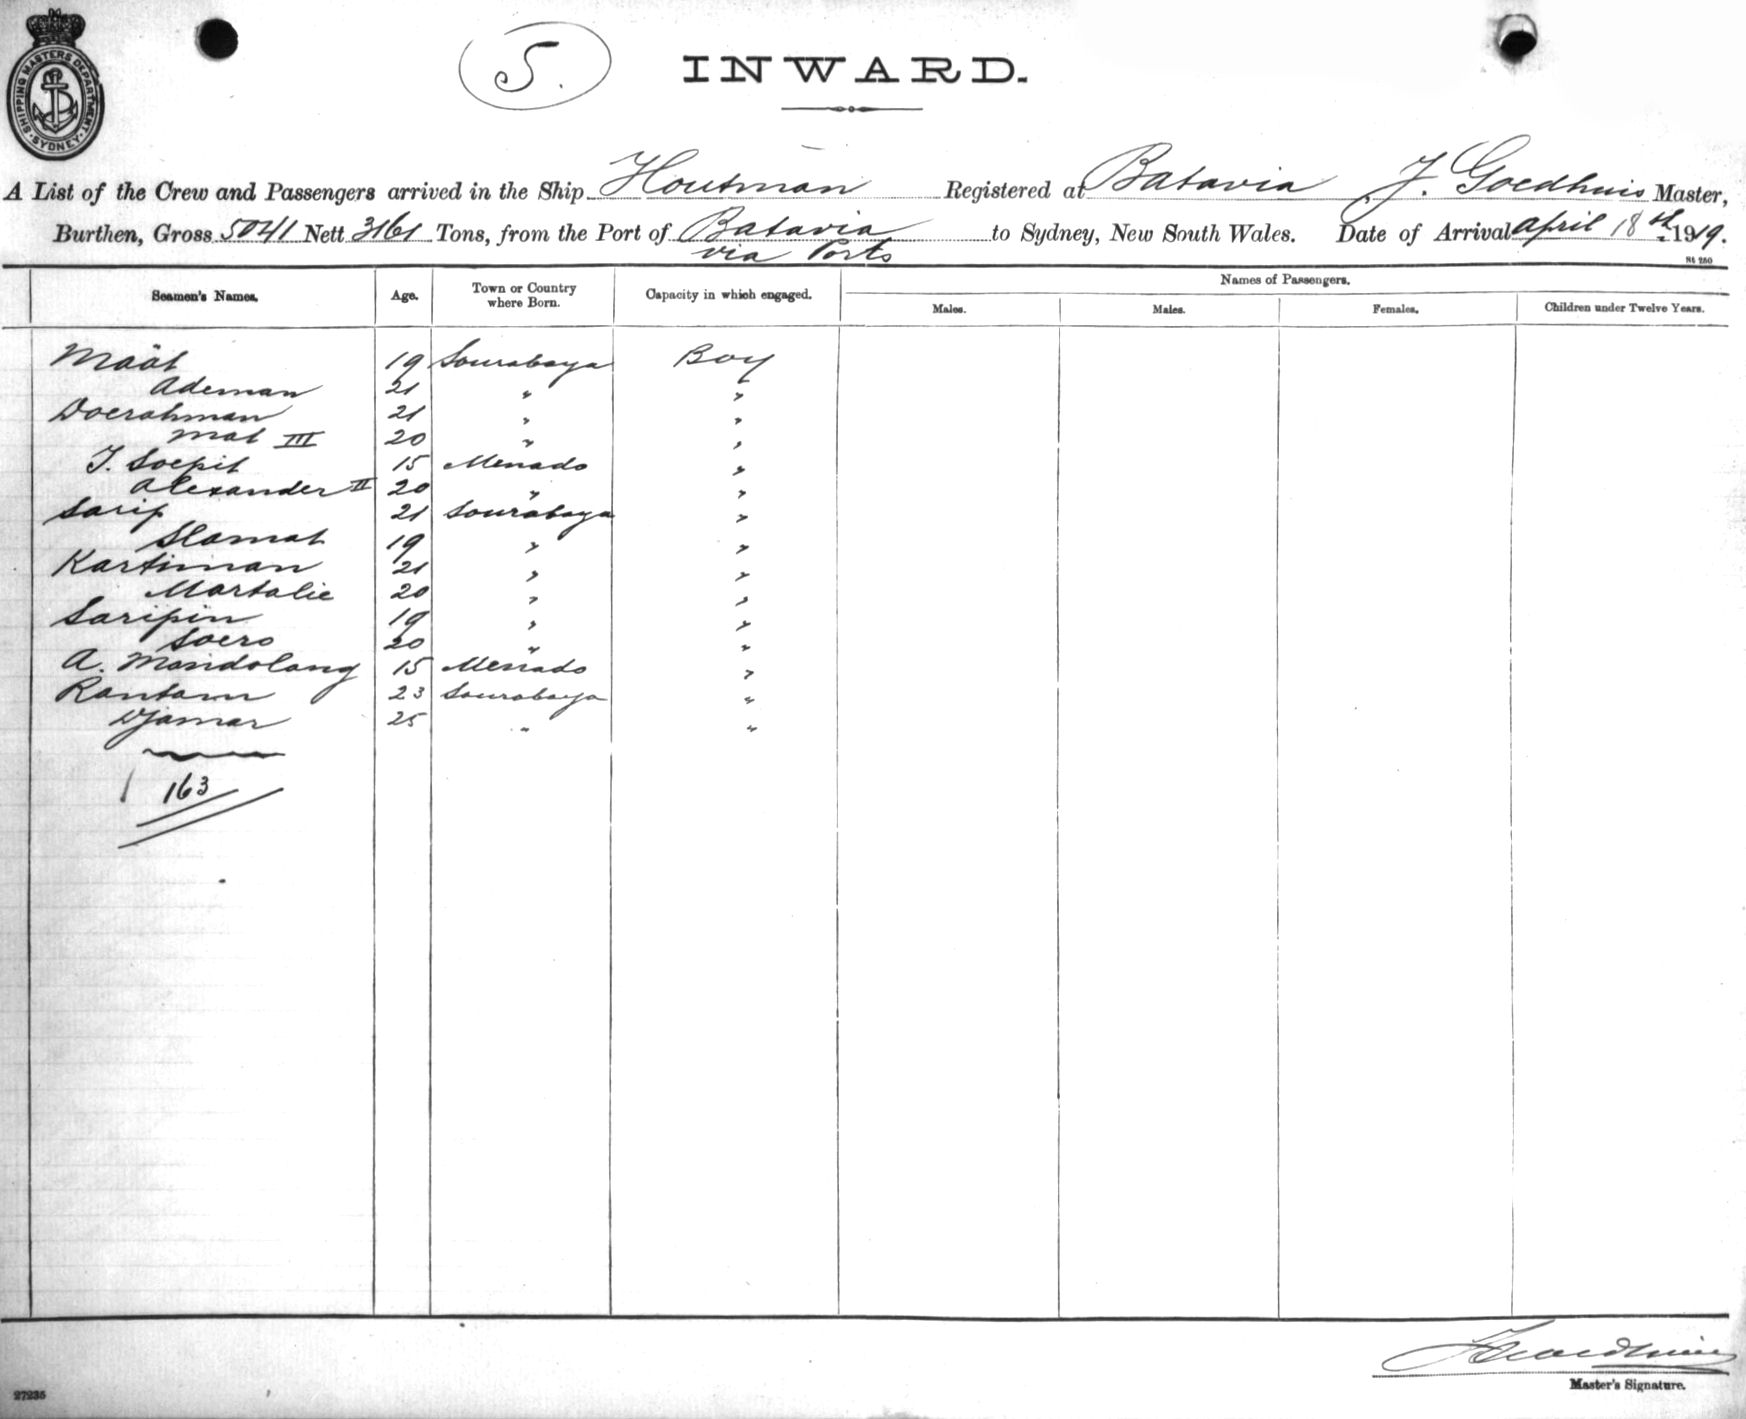 SHIPPING MASTERS DEPARTMENT. SYDNEY.
5.
INWARD.
A List of the Crew and Passengers arrived in the Ship Houtman Registered at Batavia J. Goedhuis Master,
Burthen, Gross 5041 Nett 3161 Tons, from the Port of Batavia to Sydney, New South Wales. Date of Arrival April 18th 1919.
via Ports
Seamen's Names. Age. Town or Country where Born. Capacity in which engaged. Names of Passengers.
Males. Males. Females. Children under Twelve Years.
Maät 19 Sourabaya Boy
Ademan 21 " "
Doerahman 21 " "
Mat III 20 " "
J. Soepit 15 Menado "
Alexander II 20 " "
Sarip 21 Sourabaya "
Slamat 19 " "
Kartiman 21 " "
Martalie 20 " "
Saripin 19 " "
Soero 20 " "
A. Mondolang 15 Menado "
Rantam 23 Sourabaya "
Djamar 25 " "
163
Master's Signature.
27235